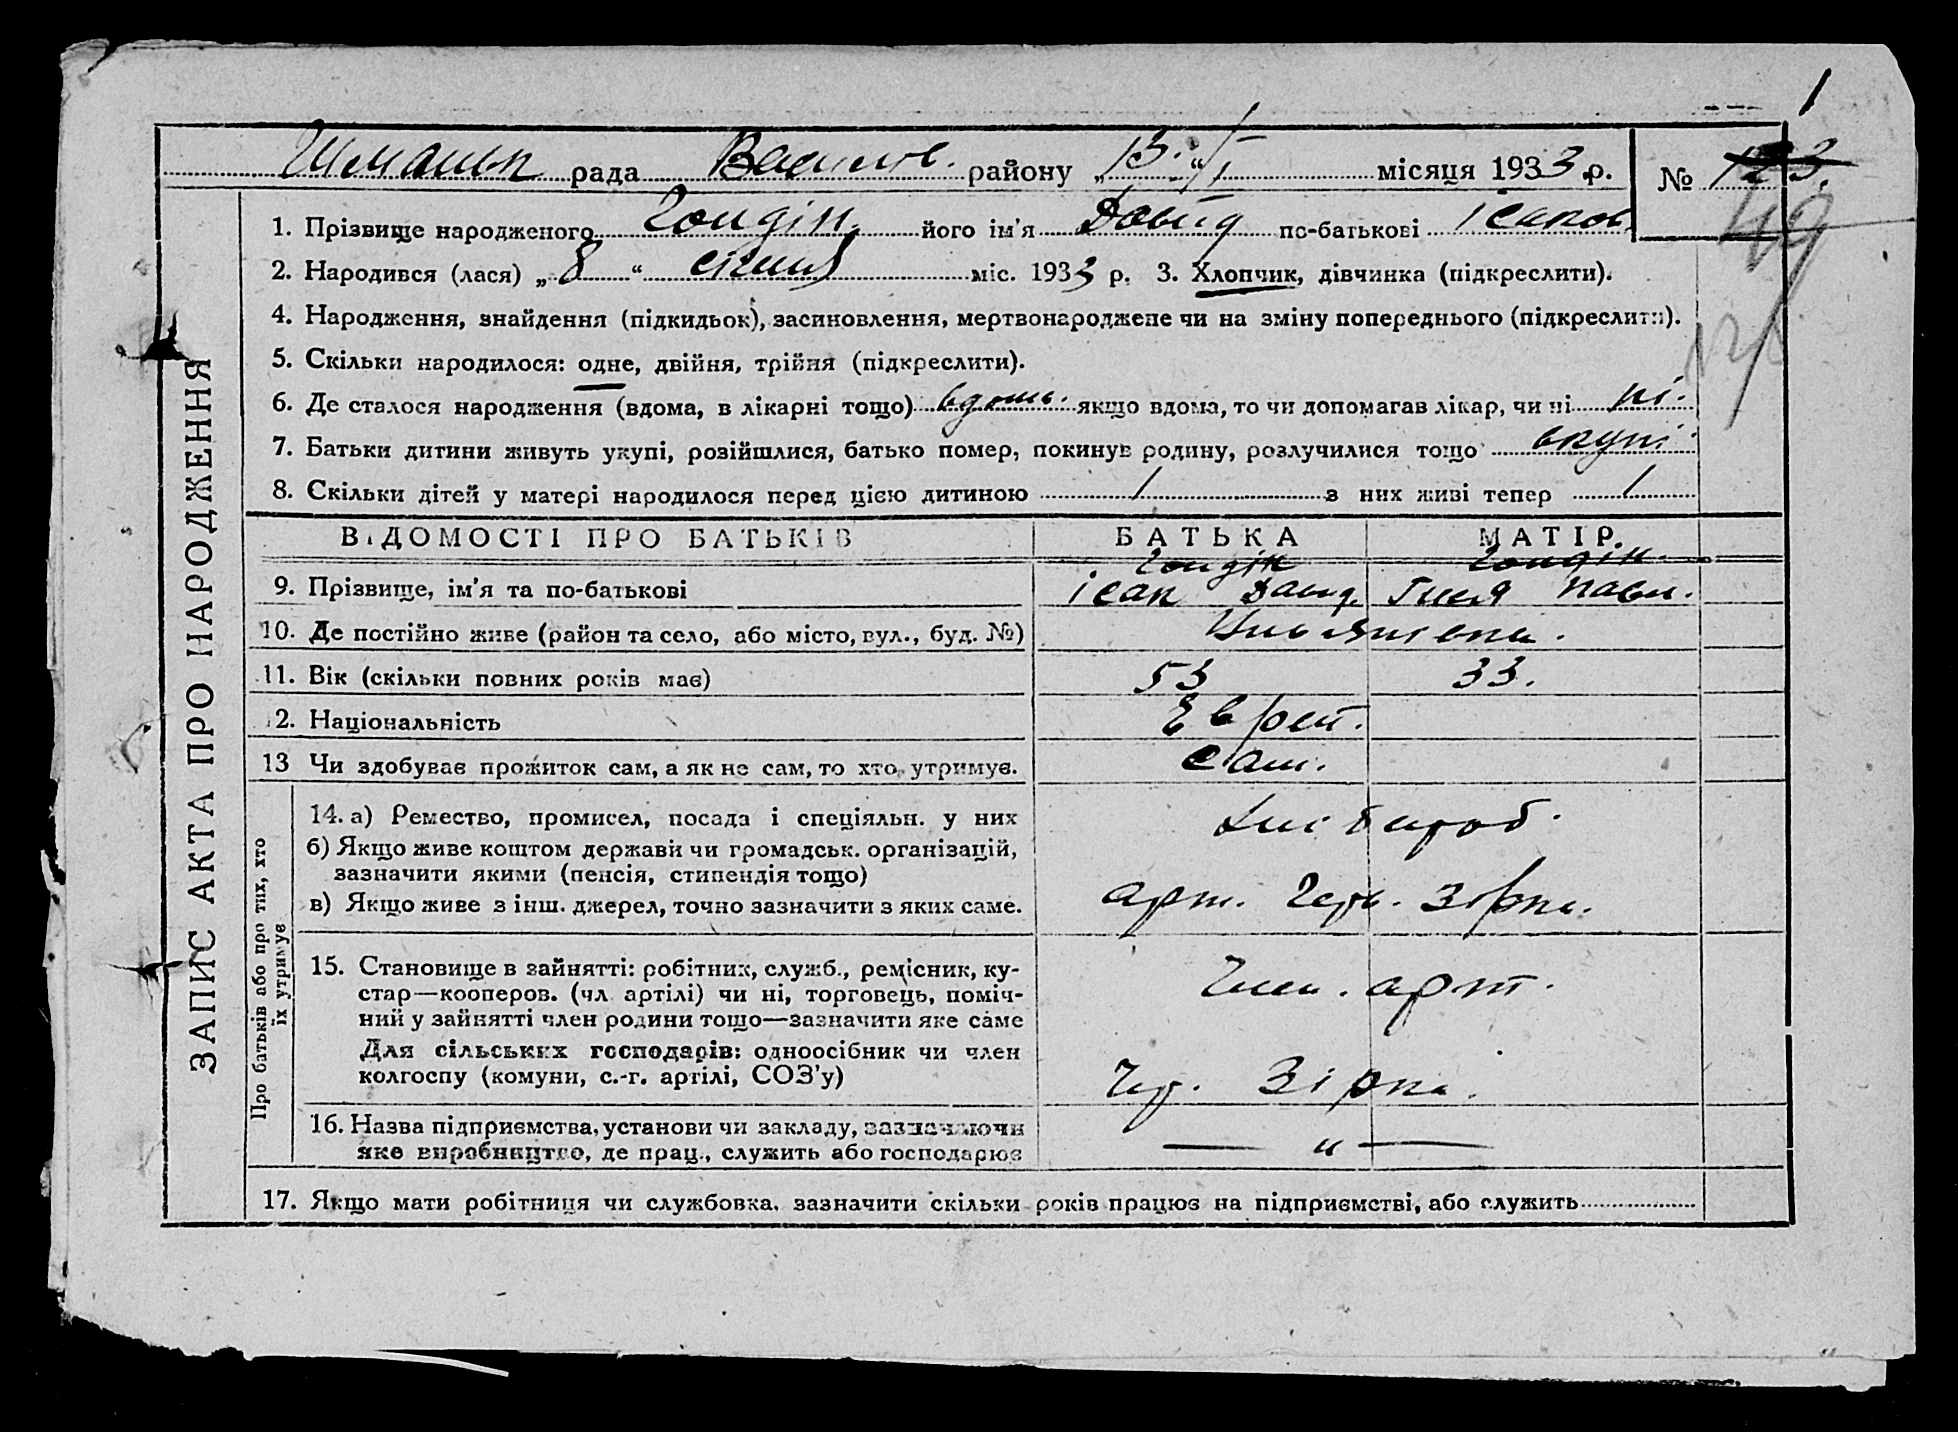 1
рада района району „13“ I місяця 1933 р. № 123.
49
1. Прізвище народженого Гондін. його ім'я Давід по-батькові Ісаков.
2. Народився (лася) „8“ січня міс. 1933 р. 3. Хлопчик, дівчинка (підкреслити).
4. Народження, знайдення (підкидьок), засиновлення, мертвонароджене чи на зміну попереднього (підкреслити).
5. Скільки народилося: одне, двійня, трійня (підкреслити).
6. Де сталося народження (вдома, в лікарні тощо) вдома. якщо вдома, то чи допомагав лікар, чи ні ні.
7. Батьки дитини живуть укупі, розійшлися, батько помер, покинув родину, розлучилися тощо вкупі
8. Скільки дітей у матері народилося перед цією дитиною 1 з них живі тепер 1
ЗАПИС АКТА ПРО НАРОДЖЕННЯ
ВІДОМОСТІ ПРО БАТЬКІВ БАТЬКА МАТІР
Гондін Гондін.
9. Прізвище, ім'я та по-батькові Ісак Давид. Павл.
10. Де постійно живе (район та село, або місто, вул., буд. №)
11. Вік (скільки повних років має) 53 33.
12. Національність Еврей.
13 Чи здобуває прожиток сам, а як не сам, то хто утримує. Сам.
Про батьків або про тих, хто
їх утримує
14. а) Ремество, промисел, посада і спеціяльн. у них
б) Якщо живе коштом держави чи громадськ. організацій,
зазначити якими (пенсія, стипендія тощо)
в) Якщо живе з інш. джерел, точно зазначити з яких саме. арт. Черв. Зірка.
15. Становище в зайнятті: робітник, служб., ремісник, ку-
стар—кооперов. (чл. артілі) чи ні, торговець, поміч- Член. арт.
ний у зайнятті член родини тощо—зазначити яке саме
Для сільських господарів: одноосібник чи член
колгоспу (комуни, с.-г. артілі, СОЗ'у) Чер. Зірка.
16. Назва підприємства, установи чи закладу, зазначаючи
яке виробництво, де прац., служить або господарює — „ —
17. Якщо мати робітниця чи службовка, зазначити скільки років працює на підприємстві, або служить